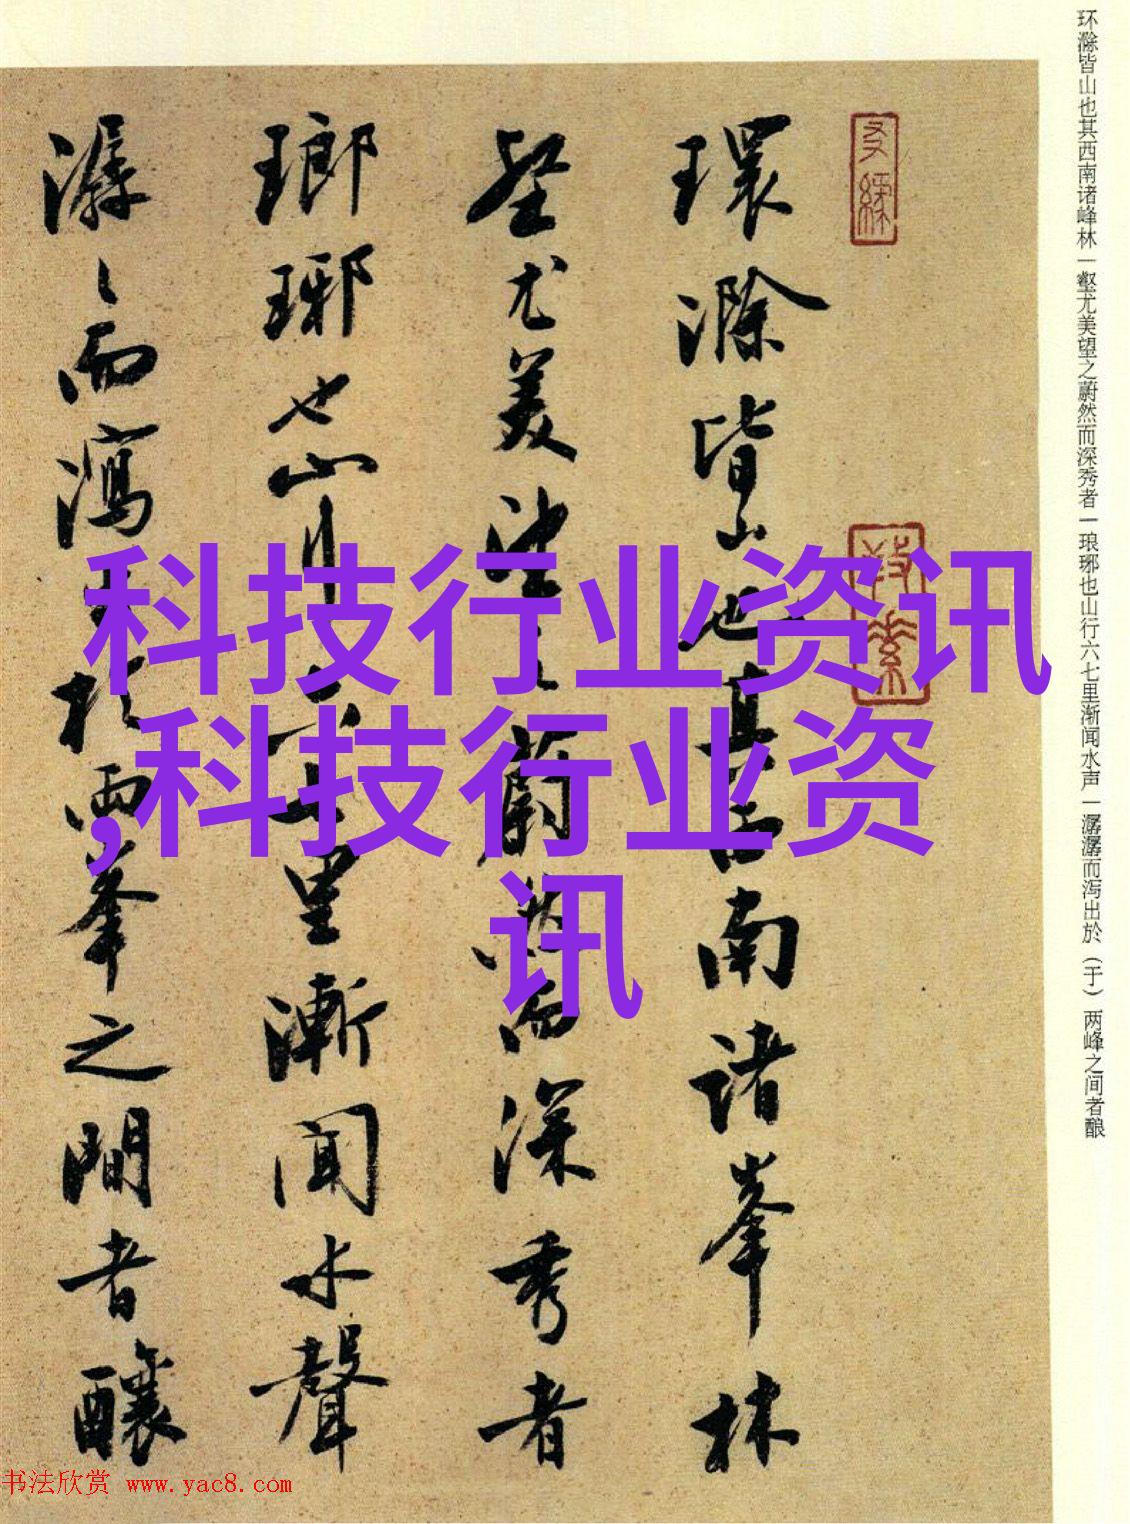 环滁皆山也其西南诸峰林一壑尤美望之蔚然而深秀者一琅琊也山行六七里渐闻水声一潺潺而泻出於（于）两峰之间者酿
環滁皆山也其西南诸峯林
壑尤美望之蔚然而深秀者
瑯琊也山行六七里漸闻水聲
潺〻而瀉出於兩峯之間者釀
科技行业资讯
,科技行业资
讯
书法欣赏 www.yac8.com